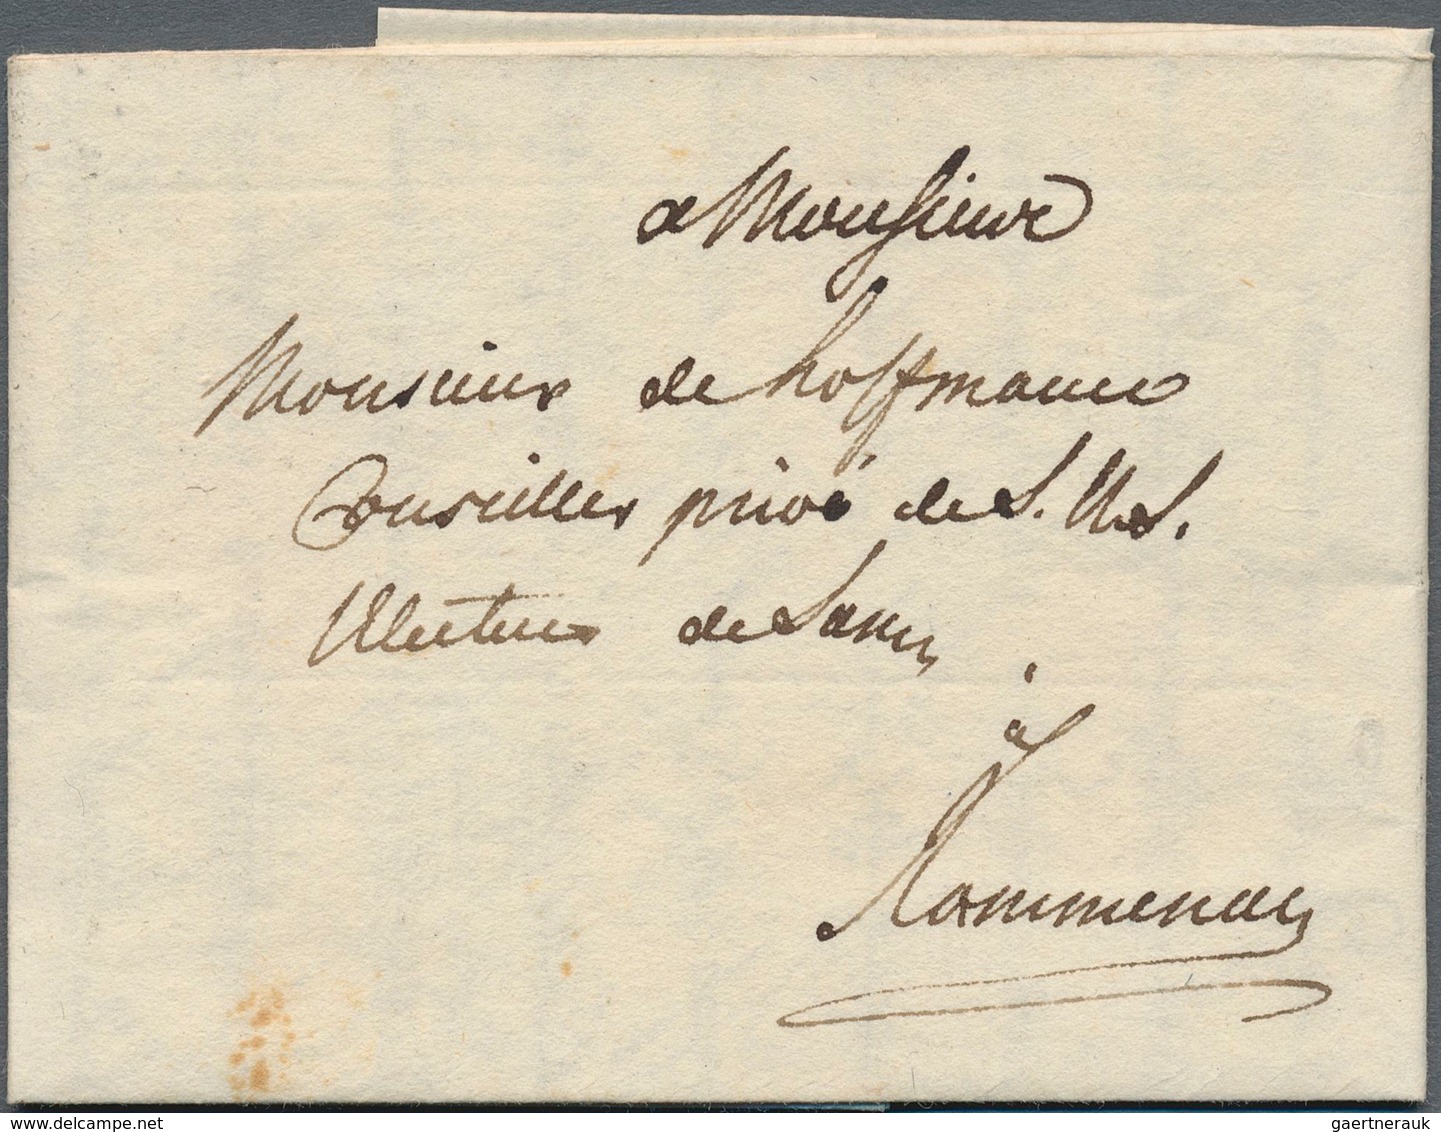 a Monsieur
Monsieur de hoffmann
Conseiller privé de S. A. S.
Electeur de Saxe
à
Rammenau
delcampe.net
gaertnerauk